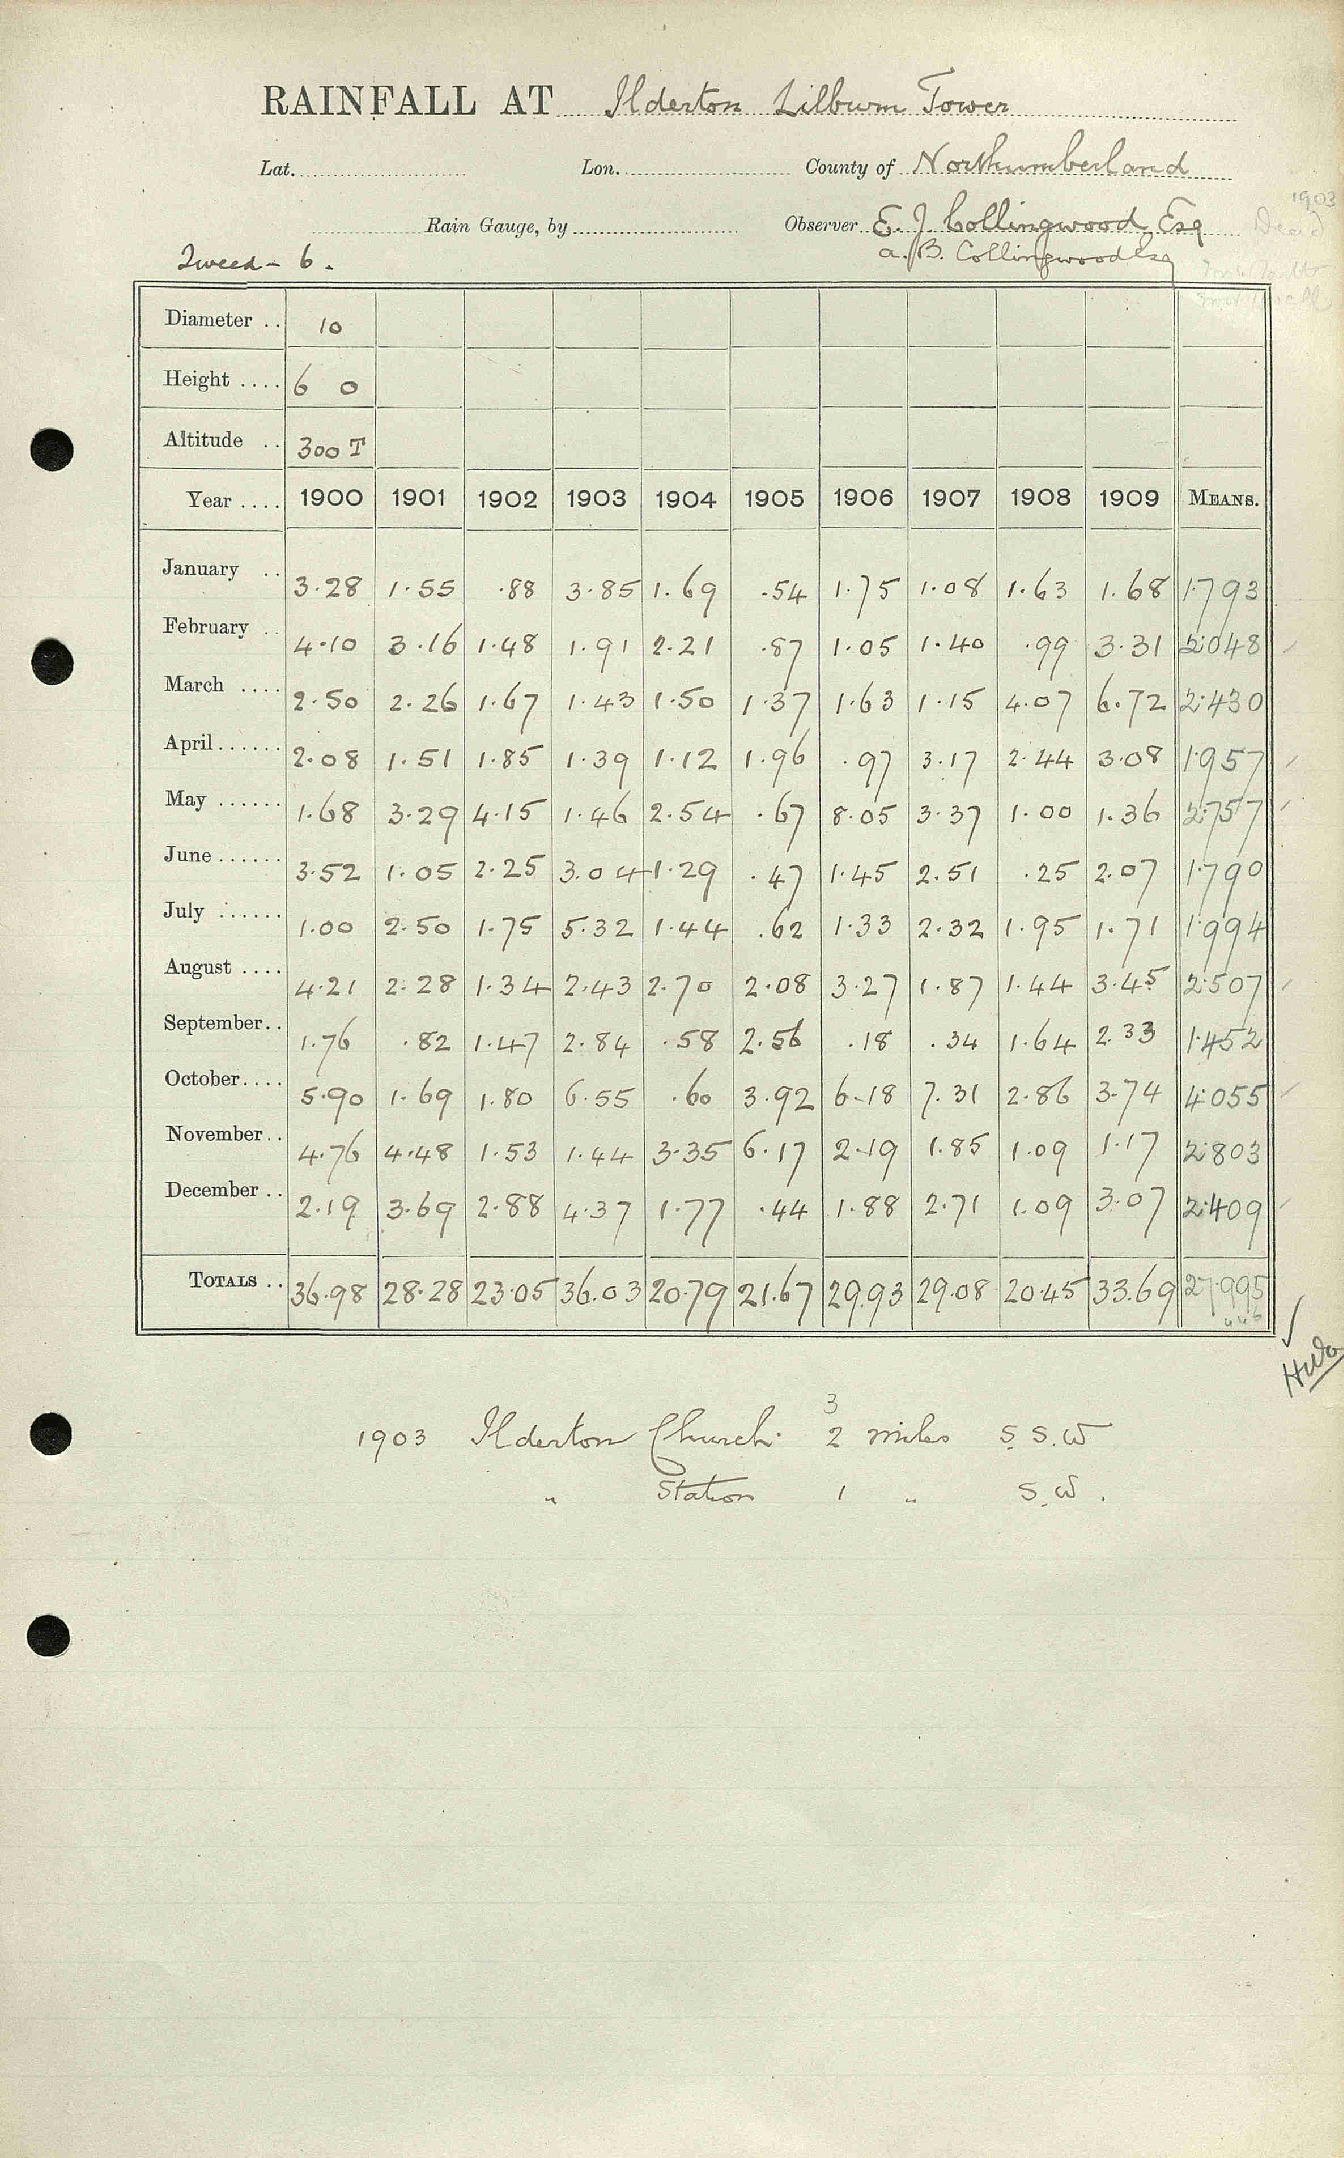 RAINFALL AT Ilderton Lilburn Tower
Lat. Lon. County of Northumberland
1903
Rain Gauge, by Observer E. J. Collingwood, Esq Dead
Tweed - 6. A. B. Collingwood Esq
Diameter .. 10
Height .... 6 0
Altitude .. 300 T
Year .... 1900 1901 1902 1903 1904 1905 1906 1907 1908 1909 MEANS.
January .. 3.28 1.55 .88 3.85 1.69 .54 1.75 1.08 1.63 1.68 1.793
February .. 4.10 3.16 1.48 1.91 2.21 .87 1.05 1.40 .99 3.31 2.048
March .... 2.50 2.26 1.67 1.43 1.50 1.37 1.63 1.15 4.07 6.72 2.430
April...... 2.08 1.51 1.85 1.39 1.12 1.96 .97 3.17 2.44 3.08 1.957
May ...... 1.68 3.29 4.15 1.46 2.54 .67 8.05 3.37 1.00 1.36 2.757
June...... 3.52 1.05 2.25 3.04 1.29 .47 1.45 2.51 .25 2.07 1.790
July ...... 1.00 2.50 1.75 5.32 1.44 .62 1.33 2.32 1.95 1.71 1.994
August .... 4.21 2.28 1.34 2.43 2.70 2.08 3.27 1.87 1.44 3.45 2.507
September.. 1.76 .82 1.47 2.84 .58 2.56 .18 .34 1.64 2.33 1.452
October.... 5.90 1.69 1.80 6.55 .60 3.92 6.18 7.31 2.86 3.74 4.055
November.. 4.76 4.48 1.53 1.44 3.35 6.17 2.19 1.85 1.09 1.17 2.803
December .. 2.19 3.69 2.88 4.37 1.77 .44 1.88 2.71 1.09 3.07 2.409
TOTALS .. 36.98 28.28 23.05 36.03 20.79 21.67 29.93 29.08 20.45 33.69 27.995
3
1903 Ilderton Church 2 miles S.S.W
" Station 1 " S.W.